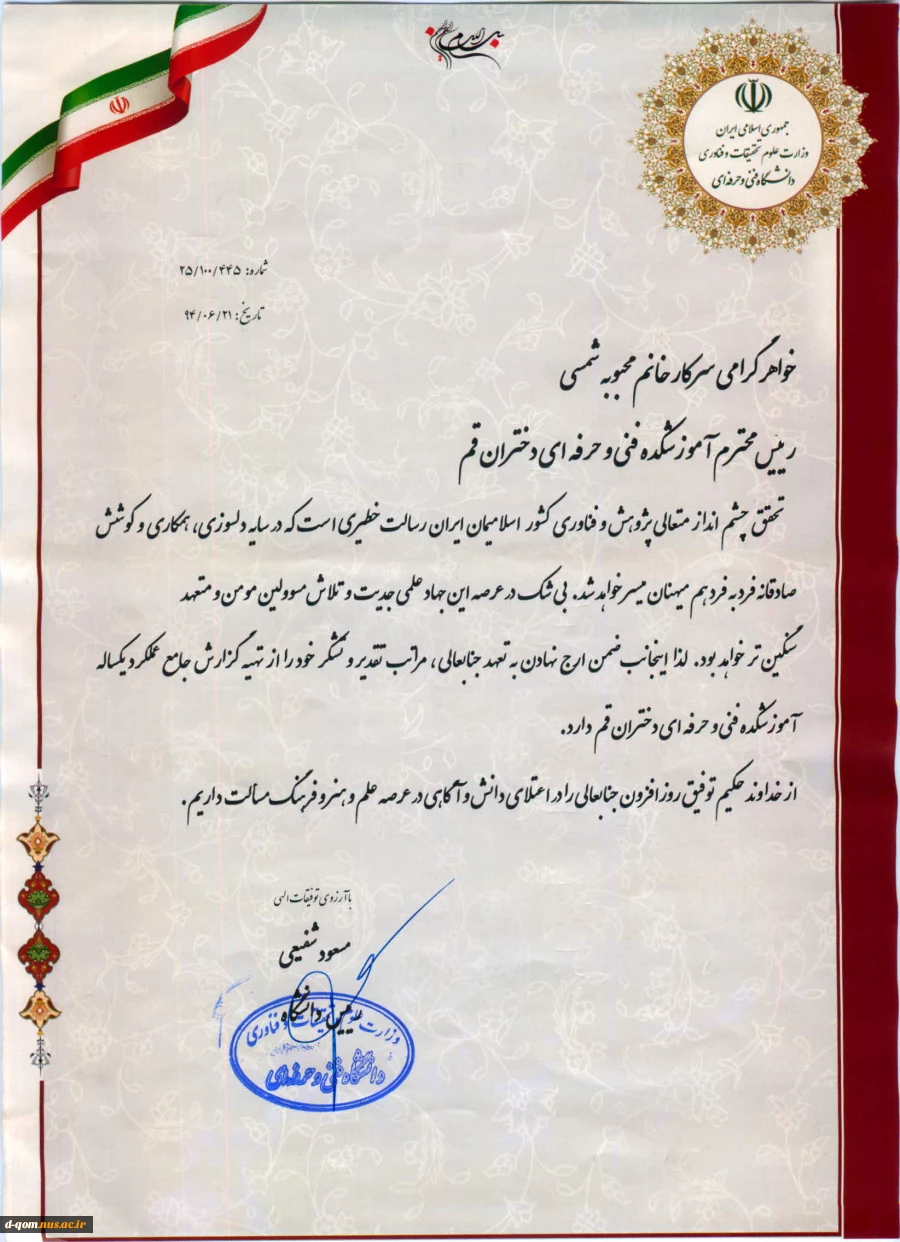 بسم الله الرحمن الرحیم
جمهوری اسلامی ایران
وزارت علوم تحقیقات و فناوری
دانشگاه فنی و حرفه‌ای
شماره: ۲۵/۱۰۰/۴۴۵
تاریخ: ۹۴/۰۶/۲۱
خواهر گرامی سرکار خانم محبوبه شمسی
رییس محترم آموزشکده فنی و حرفه ای دختران قم
تحقق چشم انداز متعالی پژوهش و فناوری کشور اسلامیمان ایران رسالت خطیری است که در سایه دلسوزی، همکاری و کوشش
صادقانه فرد به فرد هم میهنان میسر خواهد شد. بی شک در عرصه این جهاد علمی جدیت و تلاش مسوولین مومن و متعهد
سنگین تر خواهد بود. لذا اینجانب ضمن ارج نهادن به تعهد جنابعالی، مراتب تقدیر و تشکر خود را از تهیه گزارش جامع عملکرد یکساله
آموزشکده فنی و حرفه ای دختران قم دارد.
از خداوند حکیم توفیق روز افزون جنابعالی را در اعتلای دانش و آگاهی در عرصه علم و هنر و فرهنگ مسالت داریم.
با آرزوی توفیقات الهی
مسعود شفیعی
رییس دانشگاه
وزارت علوم تحقیقات و فناوری
دانشگاه فنی و حرفه‌ای
d-qom.nus.ac.ir